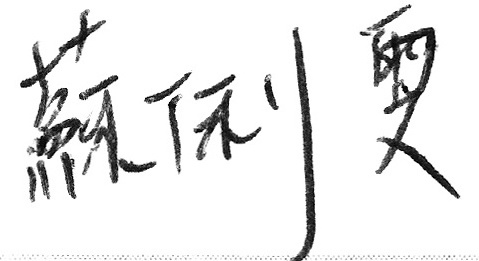 蘇俐雯